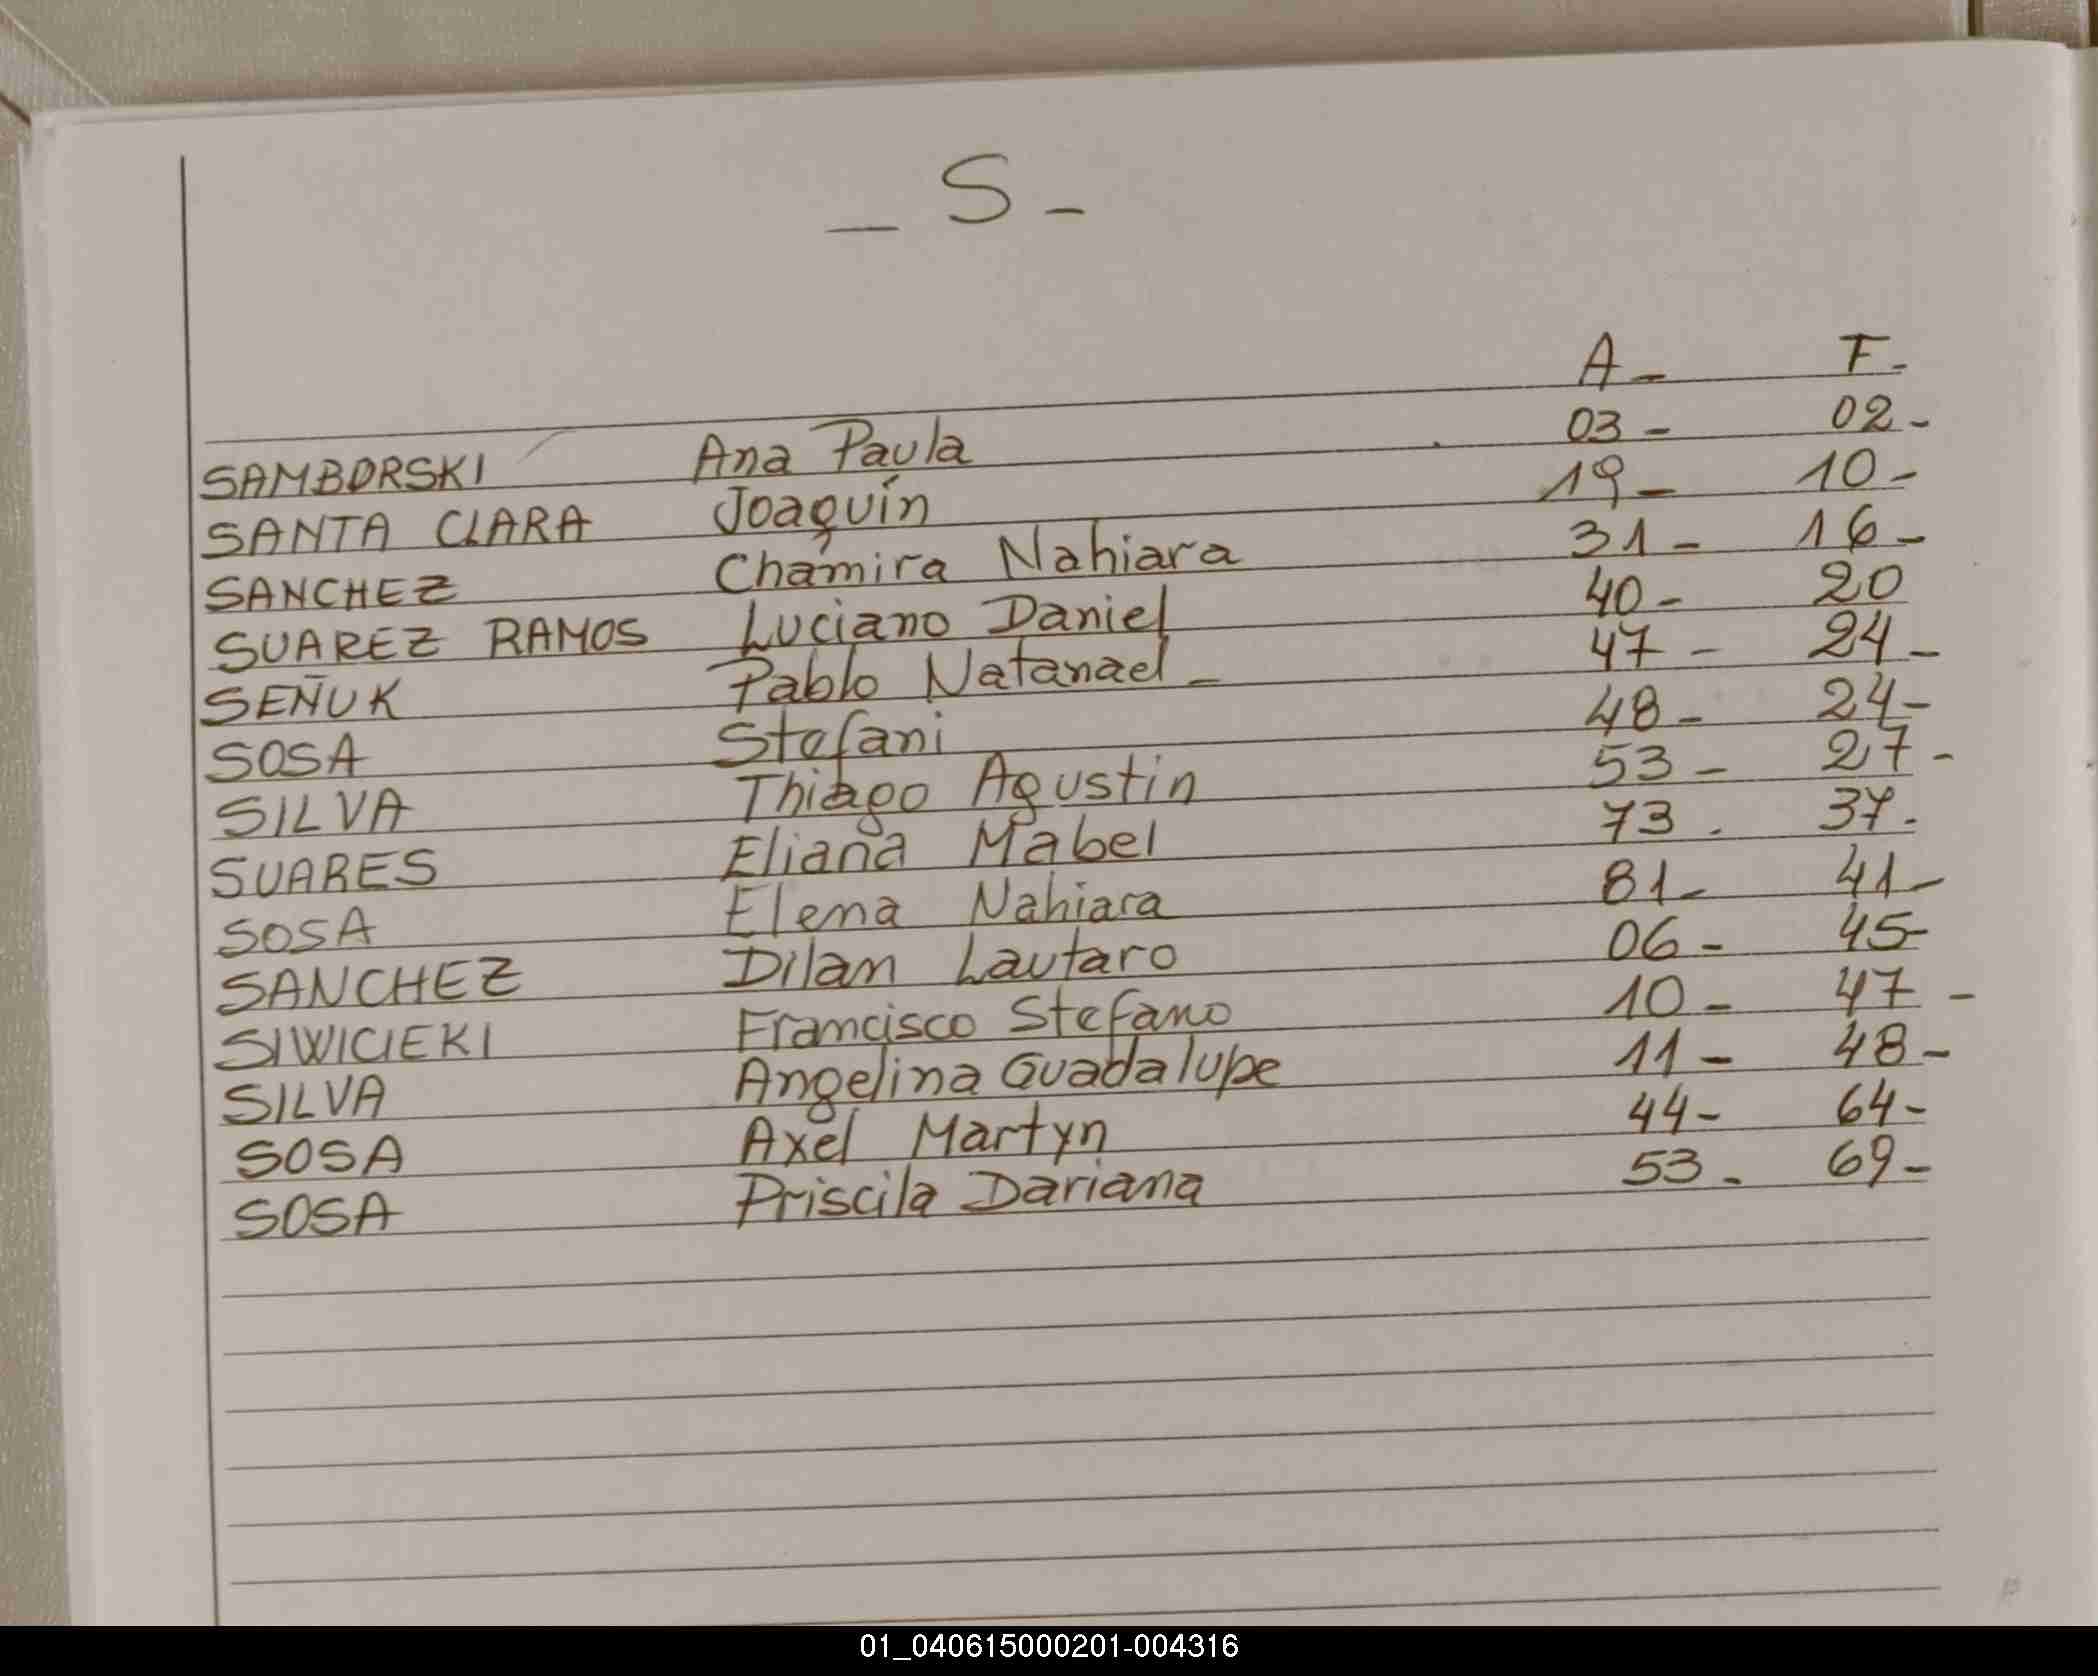 _ S -
A - F -
SAMBORSKI Ana Paula 03 - 02 -
SANTA CLARA Joaquín 19 - 10 -
SANCHEZ Chamira Nahiara 31 - 16 -
SUAREZ RAMOS Luciano Daniel 40 - 20
SEÑUK Pablo Natanael - 47 - 24 -
SOSA Stefani 48 - 24 -
SILVA Thiago Agustin 53 - 27 -
SUARES Eliana Mabel 73 . 37 .
SOSA Elena Nahiara 81 - 41 -
SANCHEZ Dilan Lautaro 06 - 45 -
SIWICIEKI Francisco Stefano 10 - 47 -
SILVA Angelina Guadalupe 11 - 48 -
SOSA Axel Martyn 44 - 64 -
SOSA Priscila Dariana 53 - 69 -
01_040615000201-004316